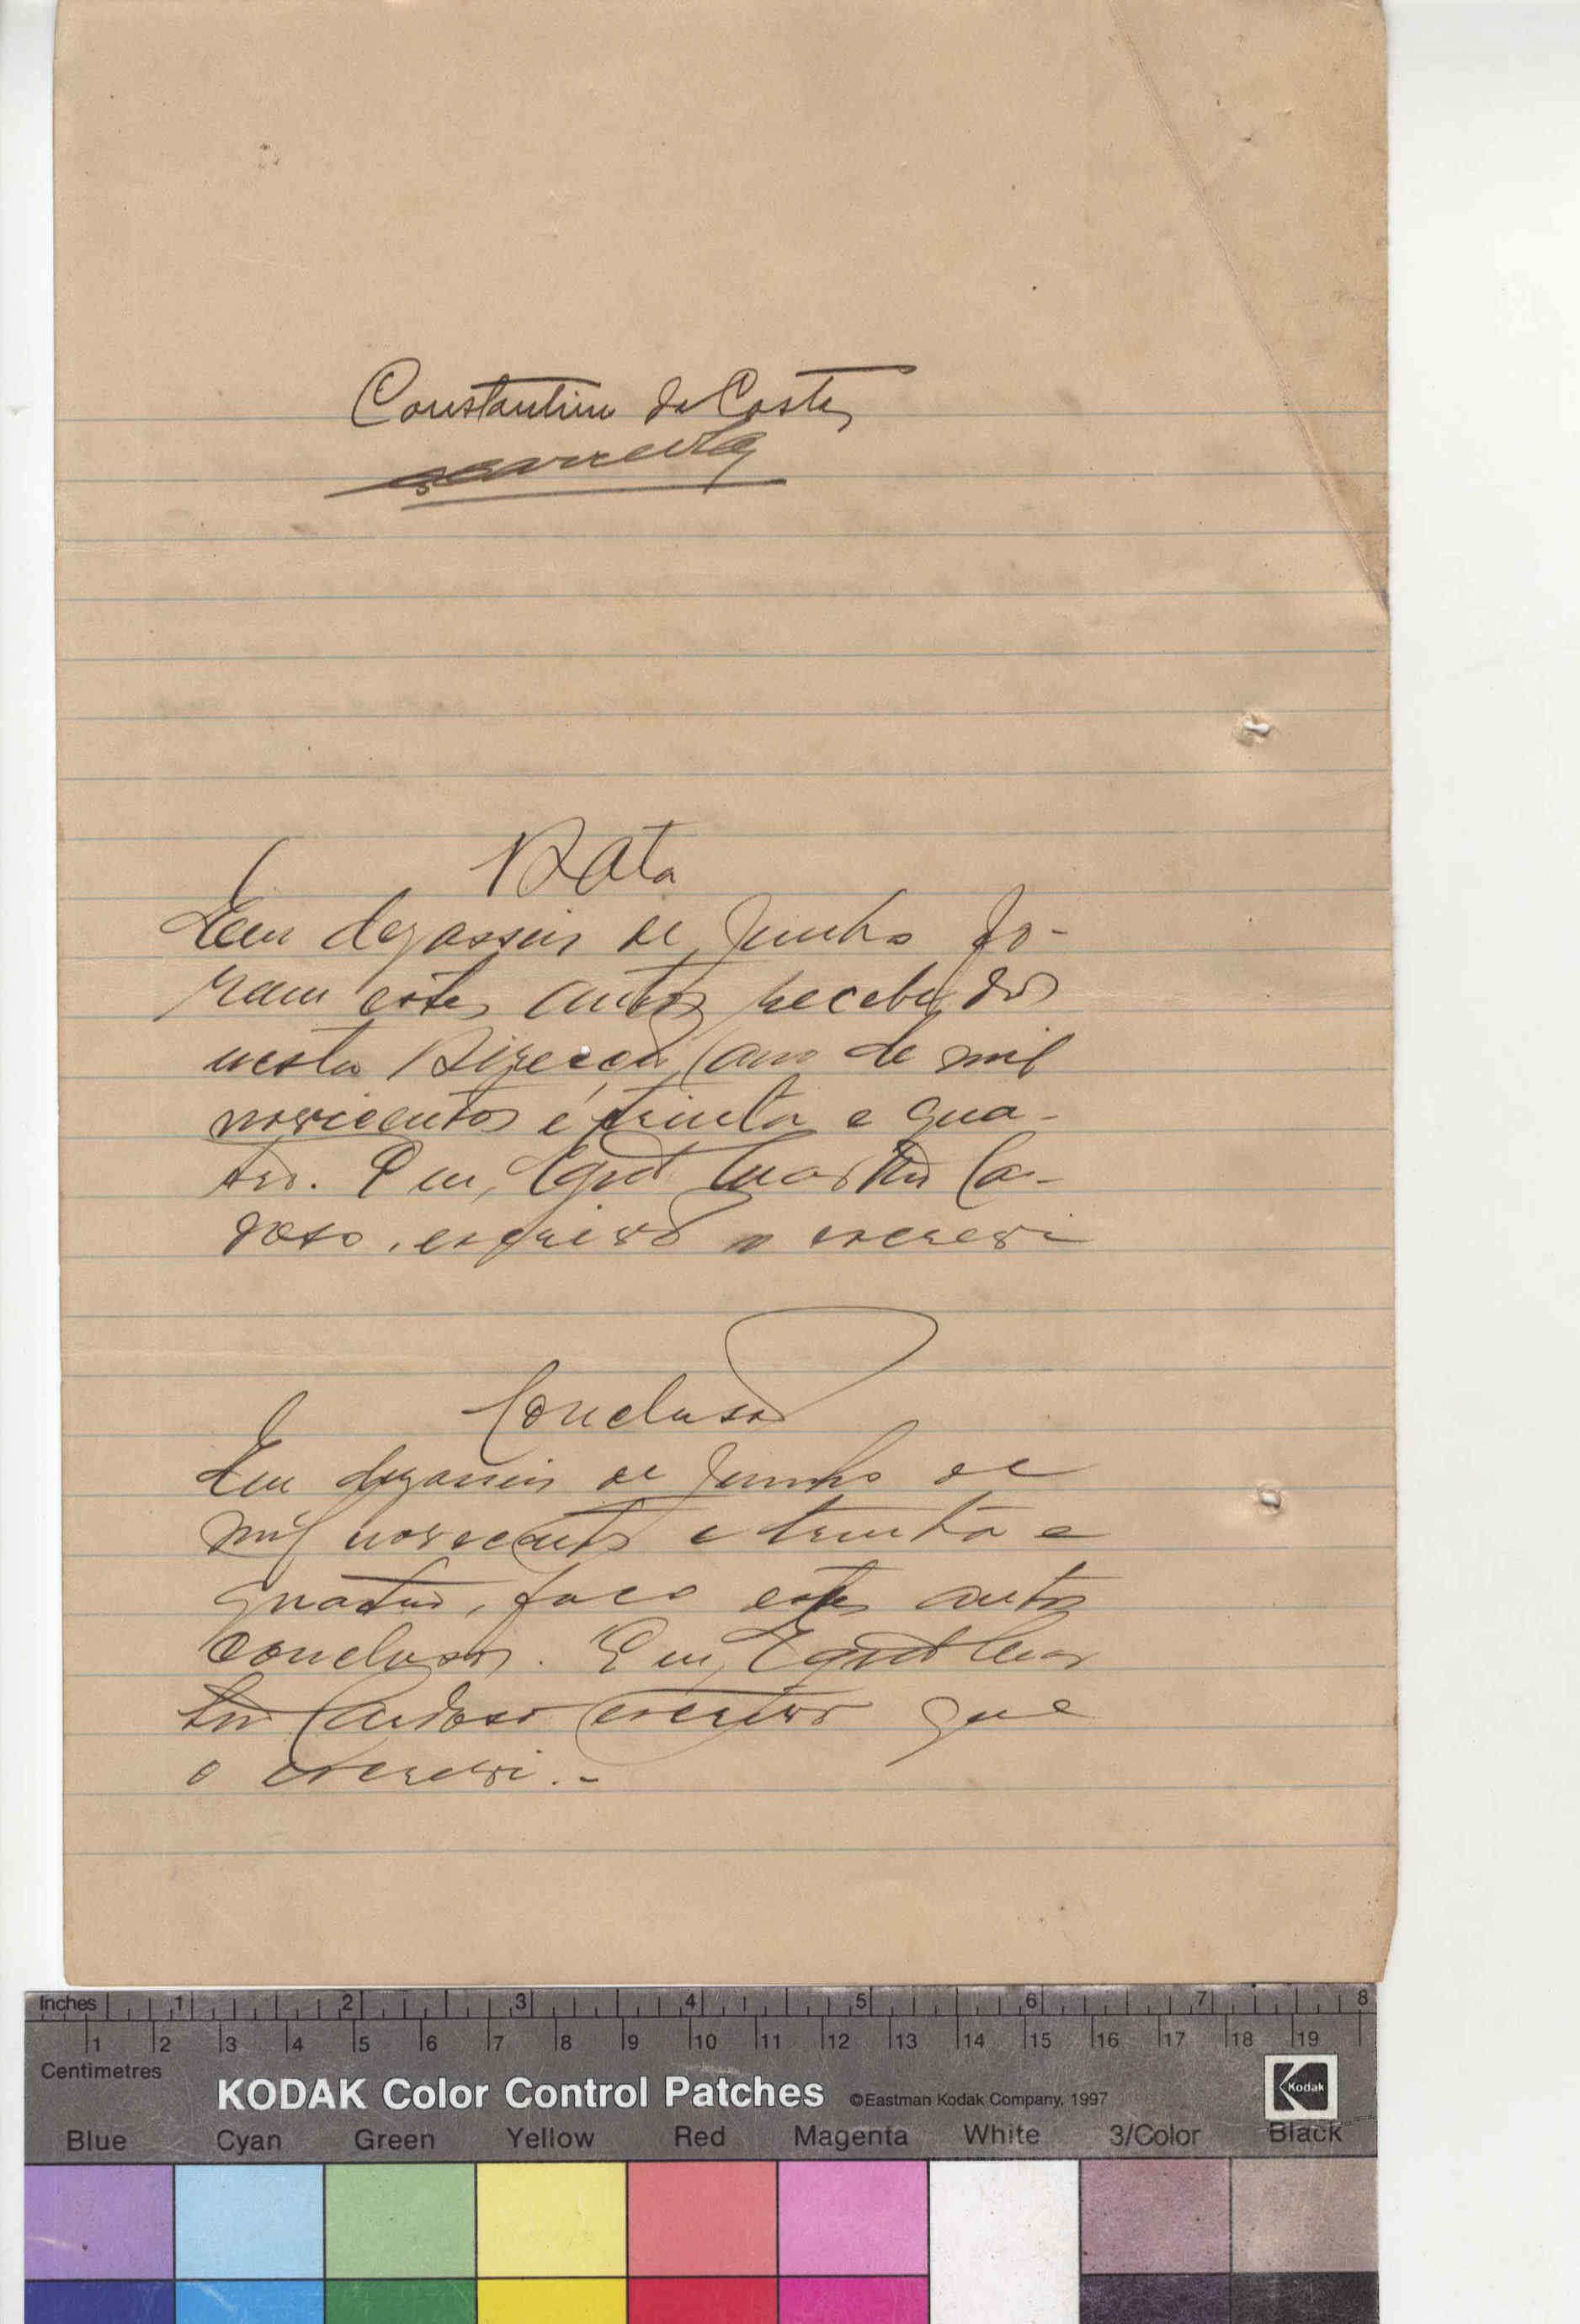 Constantino da Costa
Data
Em dezasseis de Junho fo-
ram estes autos recebidos
nesta Direcção, ano de mil
noviecentos e trinta e qua-
tro. Eu, Egret Martins Ca-
doso, escrivão o escrevi
Conclusão
Em dezasseis de Junho de
mil novecentos e trinta e
quatro, faco estes autos
conclusos. Eu, Mar
tins Cardoso escrivão que
o escrevi.-
Inches 1 2 3 4 5 6 7 8
1 2 3 4 5 6 7 8 9 10 11 12 13 14 15 16 17 18 19
Centimetres
KODAK Color Control Patches ©Eastman Kodak Company, 1997 Kodak
Blue Cyan Green Yellow Red Magenta White 3/Color Black